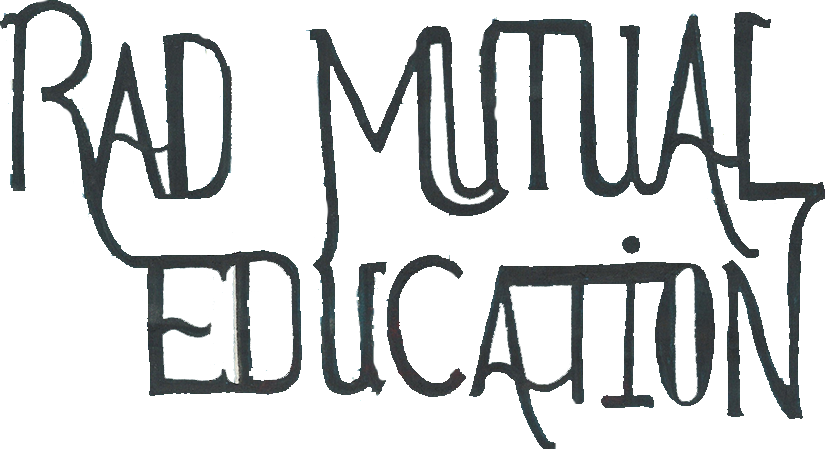 RAD MUTUAL
EDUCATiON